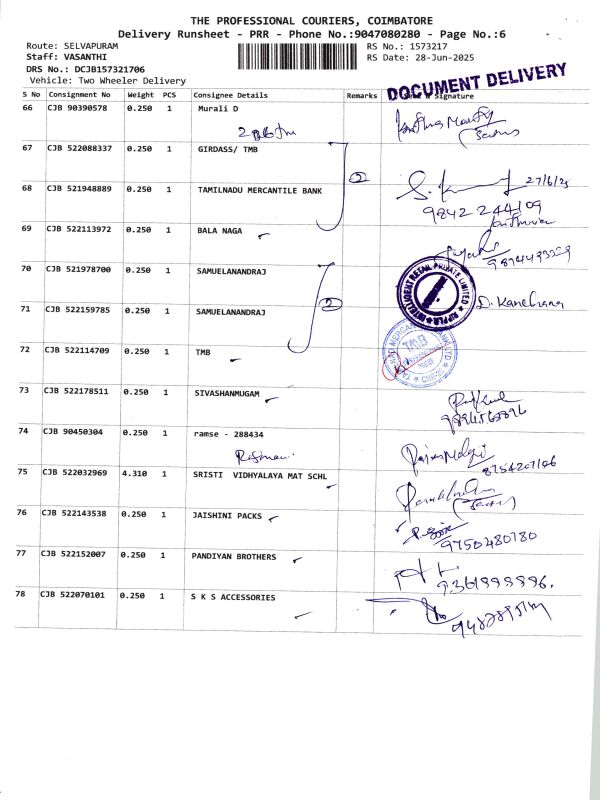 THE PROFESSIONAL COURIERS, COIMBATORE
Delivery Runsheet - PRR - Phone No.:9047080280 - Page No.:6
Route: SELVAPURAM
RS No.: 1573217
Staff: VASANTHI
RS Date: 28-Jun-2025
DRS No.: DCJB157321706
Vehicle: Two Wheeler Delivery
DOCUMENT DELIVERY
S No Consignment No Weight PCS Consignee Details Remarks Signature
66 CJB 90390578 0.250 1 Murali D
67 CJB 522088337 0.250 1 GIRDASS/ TMB
2
27/6/25
68 CJB 521948889 0.250 1 TAMILNADU MERCANTILE BANK
9842 244109
69 CJB 522113972 0.250 1 BALA NAGA
70 CJB 521978700 0.250 1 SAMUELANANDRAJ
INTELLIGENT RETAIL PRIVATE LIMITED
2
D. Kanchana
71 CJB 522159785 0.250 1 SAMUELANANDRAJ
72 CJB 522114709 0.250 1 TMB
TMB
73 CJB 522178511 0.250 1 SIVASHANMUGAM
9894563896
74 CJB 90450304 0.250 1 ramse - 288434
8754207106
75 CJB 522032969 4.310 1 SRISTI VIDHYALAYA MAT SCHL
76 CJB 522143538 0.250 1 JAISHINI PACKS
9750480780
77 CJB 522152007 0.250 1 PANDIYAN BROTHERS
9361999896.
78 CJB 522070101 0.250 1 S K S ACCESSORIES